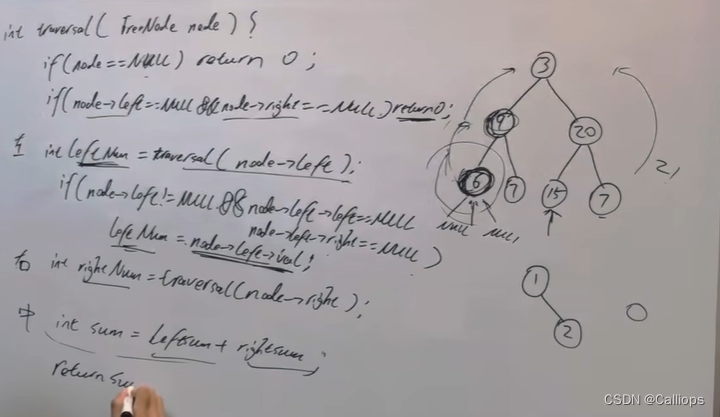 int traversal( TreeNode node ) {
if(node==NULL) return 0;
if(node->left==NULL && node->right==NULL) return 0;
左 int leftNum = traversal( node->left );
if(node->left!=NULL && node->left->left==NULL
node->left->right==NULL)
leftNum = node->left->val;
右 int rightNum = traversal(node->right);
中 int sum = leftsum + rightsum;
return su
3
9
20
6
7
15
7
NULL
NULL
21
1
2
0
CSDN @Calliops